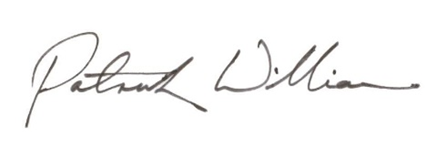 Patrick William